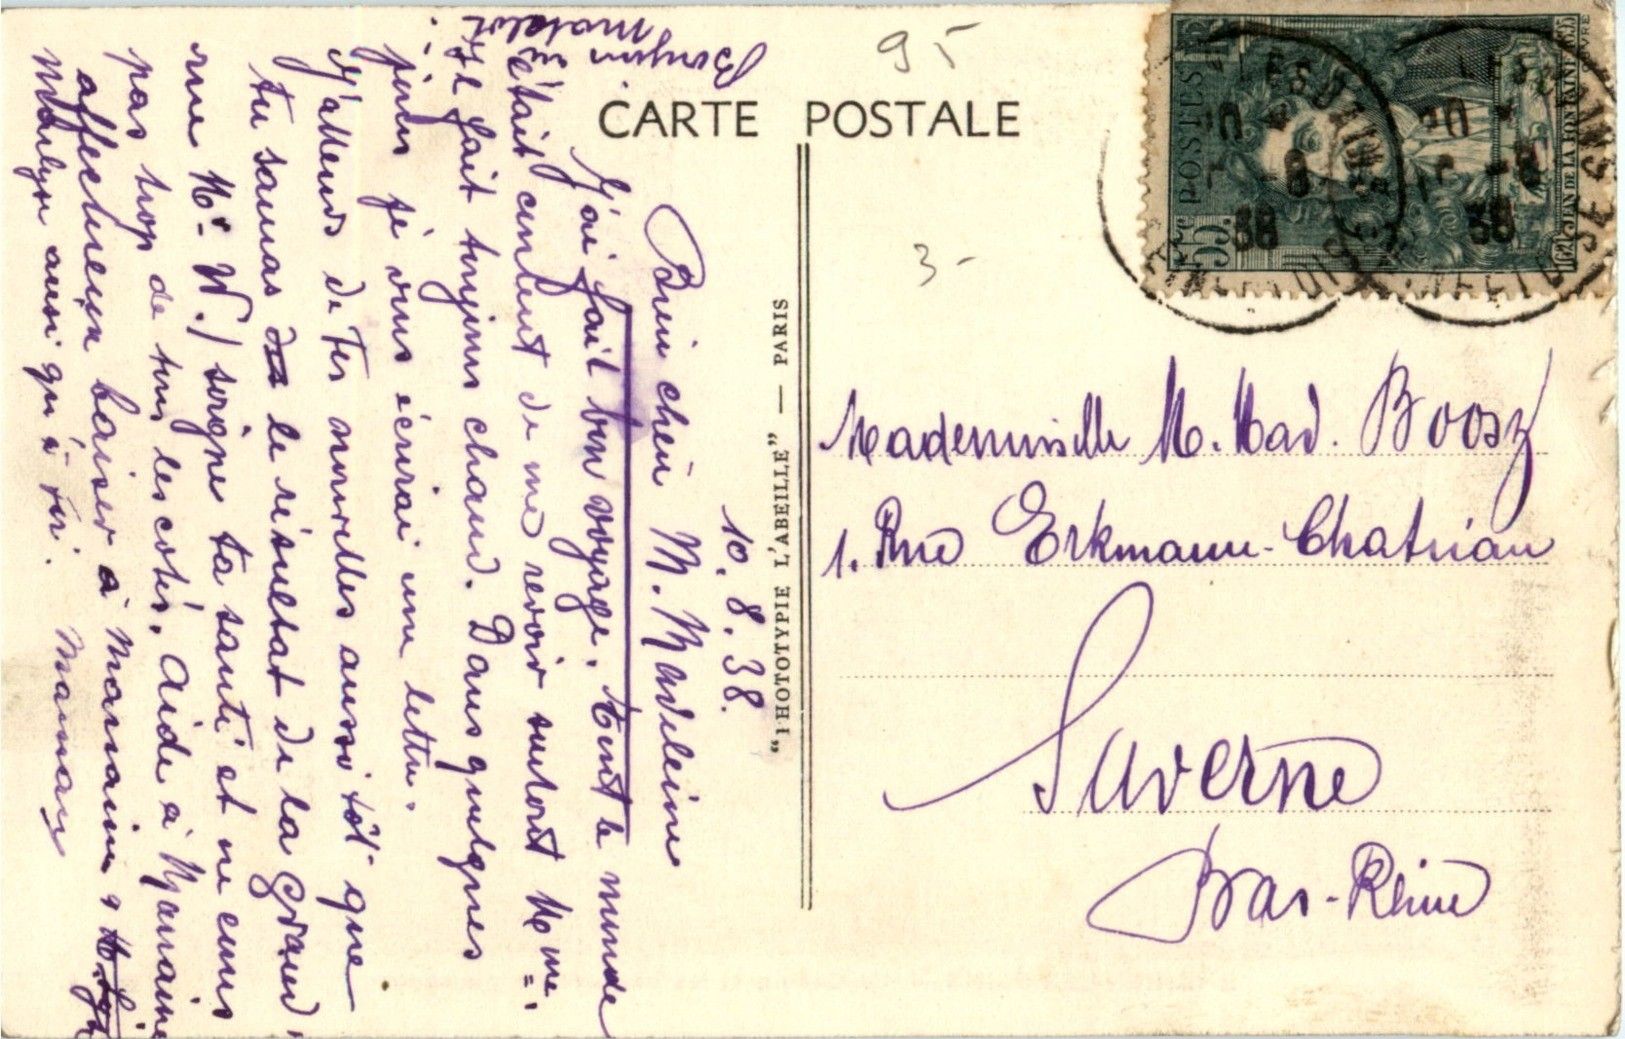 95
CARTE POSTALE
3-
POSTES
55c
JEAN DE LA FONTAINE
38
38
"PHOTOTYPIE L'ABEILLE" — PARIS
10.8.38.
Bien chère M. Madeleine
J'ai fait bon voyage. Tout le monde
était content de me revoir surtout Mme.
Il fait toujours chaud. Dans quelques
jours je vous écrirai une lettre.
J'attends de Tes nouvelles aussitôt que
tu sauras le résultat de la grand'
rue Mr W./ soigne ta santé et ne cours
pas trop de tous les cotés. Aide à Marraine
affectueux baiser à Marraine &
ainsi qu'à toi.
Maman
Mademoiselle M. Mad. Boosz
1. Rue Erkmann-Chatrian
Saverne
Bas-Rhin